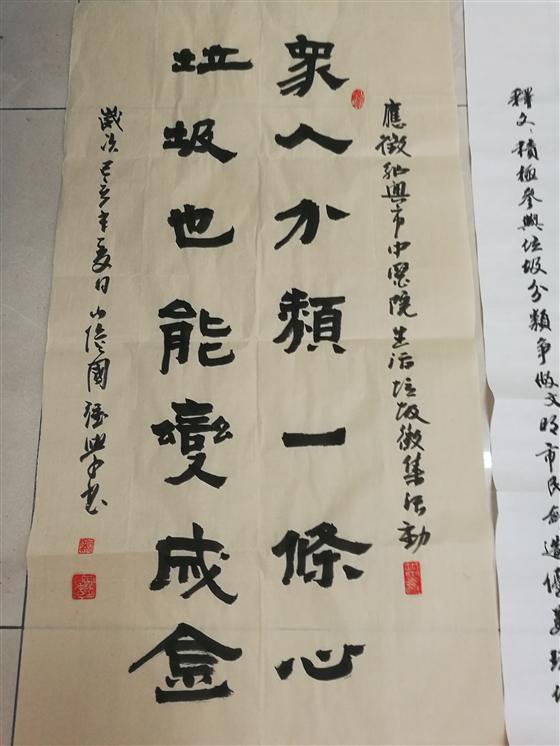 釋文、積極參與垃圾分類爭做文明市民創造優美
應徵紹興市中醫院生活垃圾徵集活動
眾人分類一條心
垃圾也能變成金
歲次己亥年夏日山陰國強學書